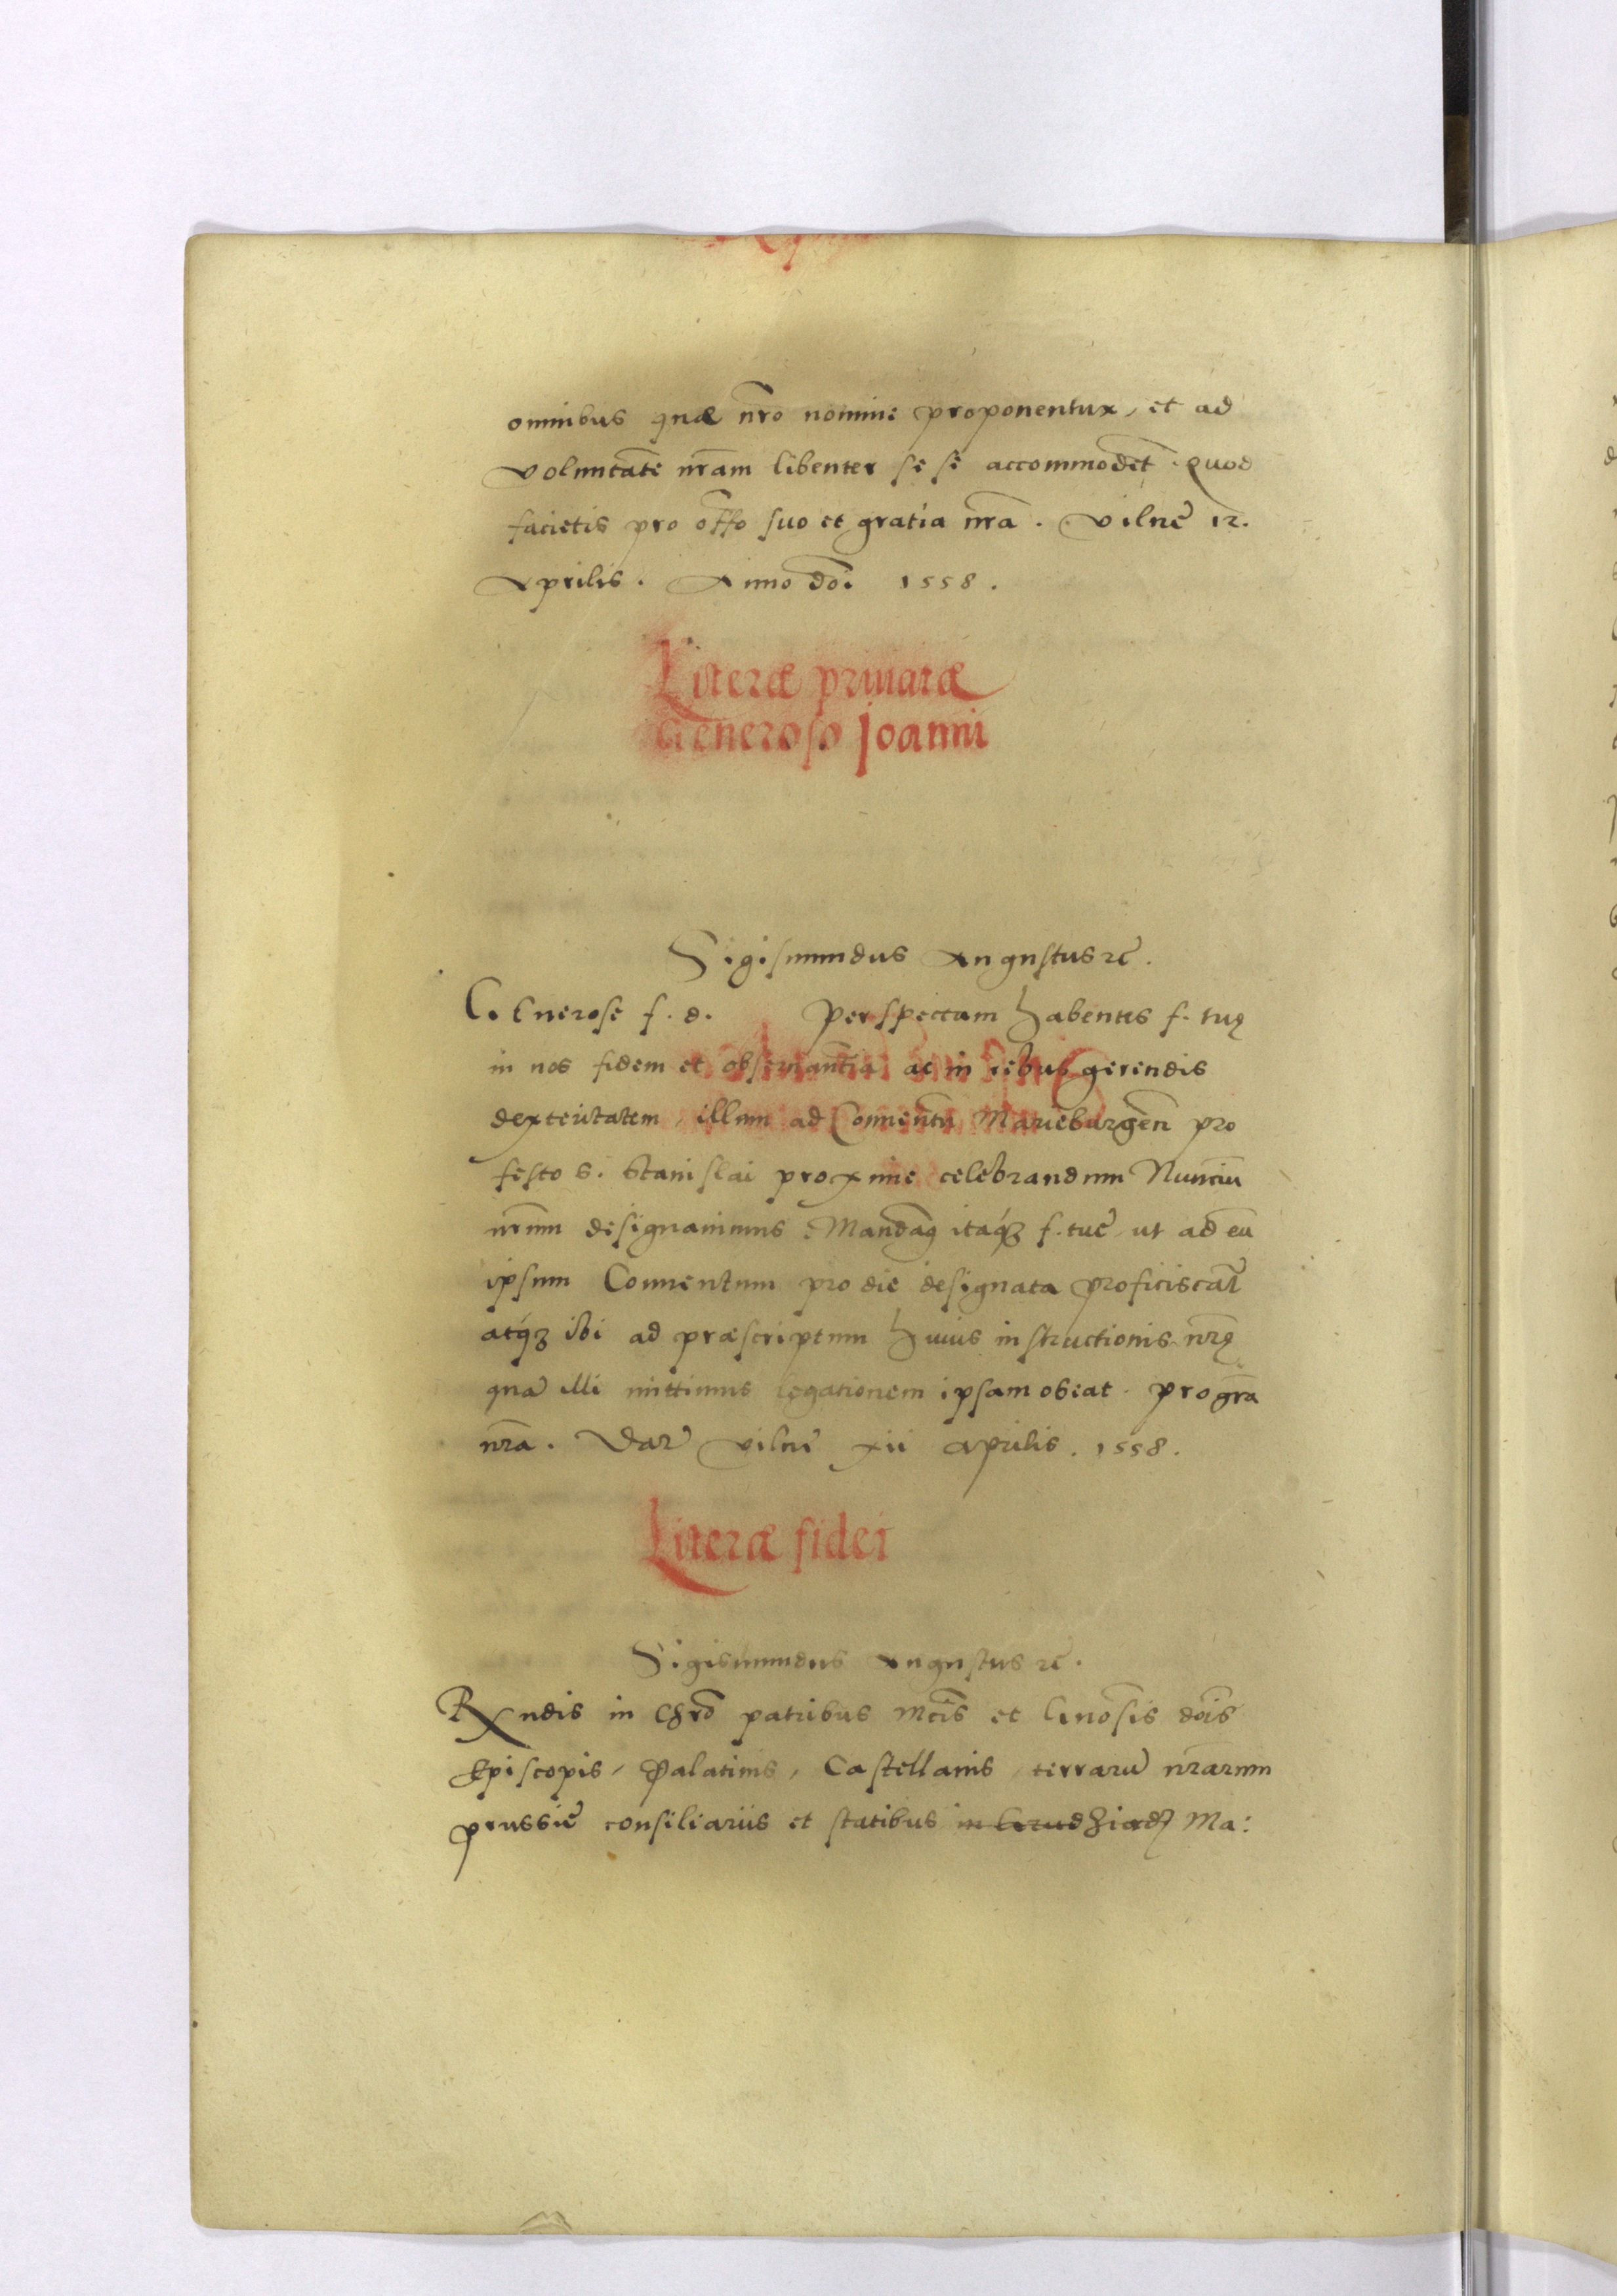 omnibus quæ nr̃o nomine proponentur, et ad
voluntatẽ nr̃am libenter se se accommodet̃. quod
facietis pro offõ suo et gratia nr̃a. Vilnę 12.
Aprilis. Anno dõi 1558.
Literæ priuatæ
Generoso Joanni
Sigismundus Augustus rc̃.
Generose f. d. Perspectam habentes f. tuę
in nos fidem et obseruantiã ac in rebus gerendis
dexteritatem, illum ad Conuentũ Marieburgeñ pro
festo S. Stanislai proxime celebrandum Nunciũ
nr̃um designauimus. Mandamꝰ itaqꝫ f. tuę ut ad eũ
ipsum Conuentum pro die designata proficiscat̃
atqꝫ ibi ad præscriptum huius instructionis nr̃ę
quã illi mittimus legationem ipsam obeat. pro gr̃a
nr̃a. Dat̃ Vilnę xii Aprilis. 1558.
Literæ fidei
Sigismundus Augustus rc̃.
Rx̃ndis in Chrõ patribus Mcis̃ et Gnosis̃ dõis
Episcopis, Palatinis, Castellanis, terrarũ nr̃arum
Prussię consiliariis et statibus Ma: